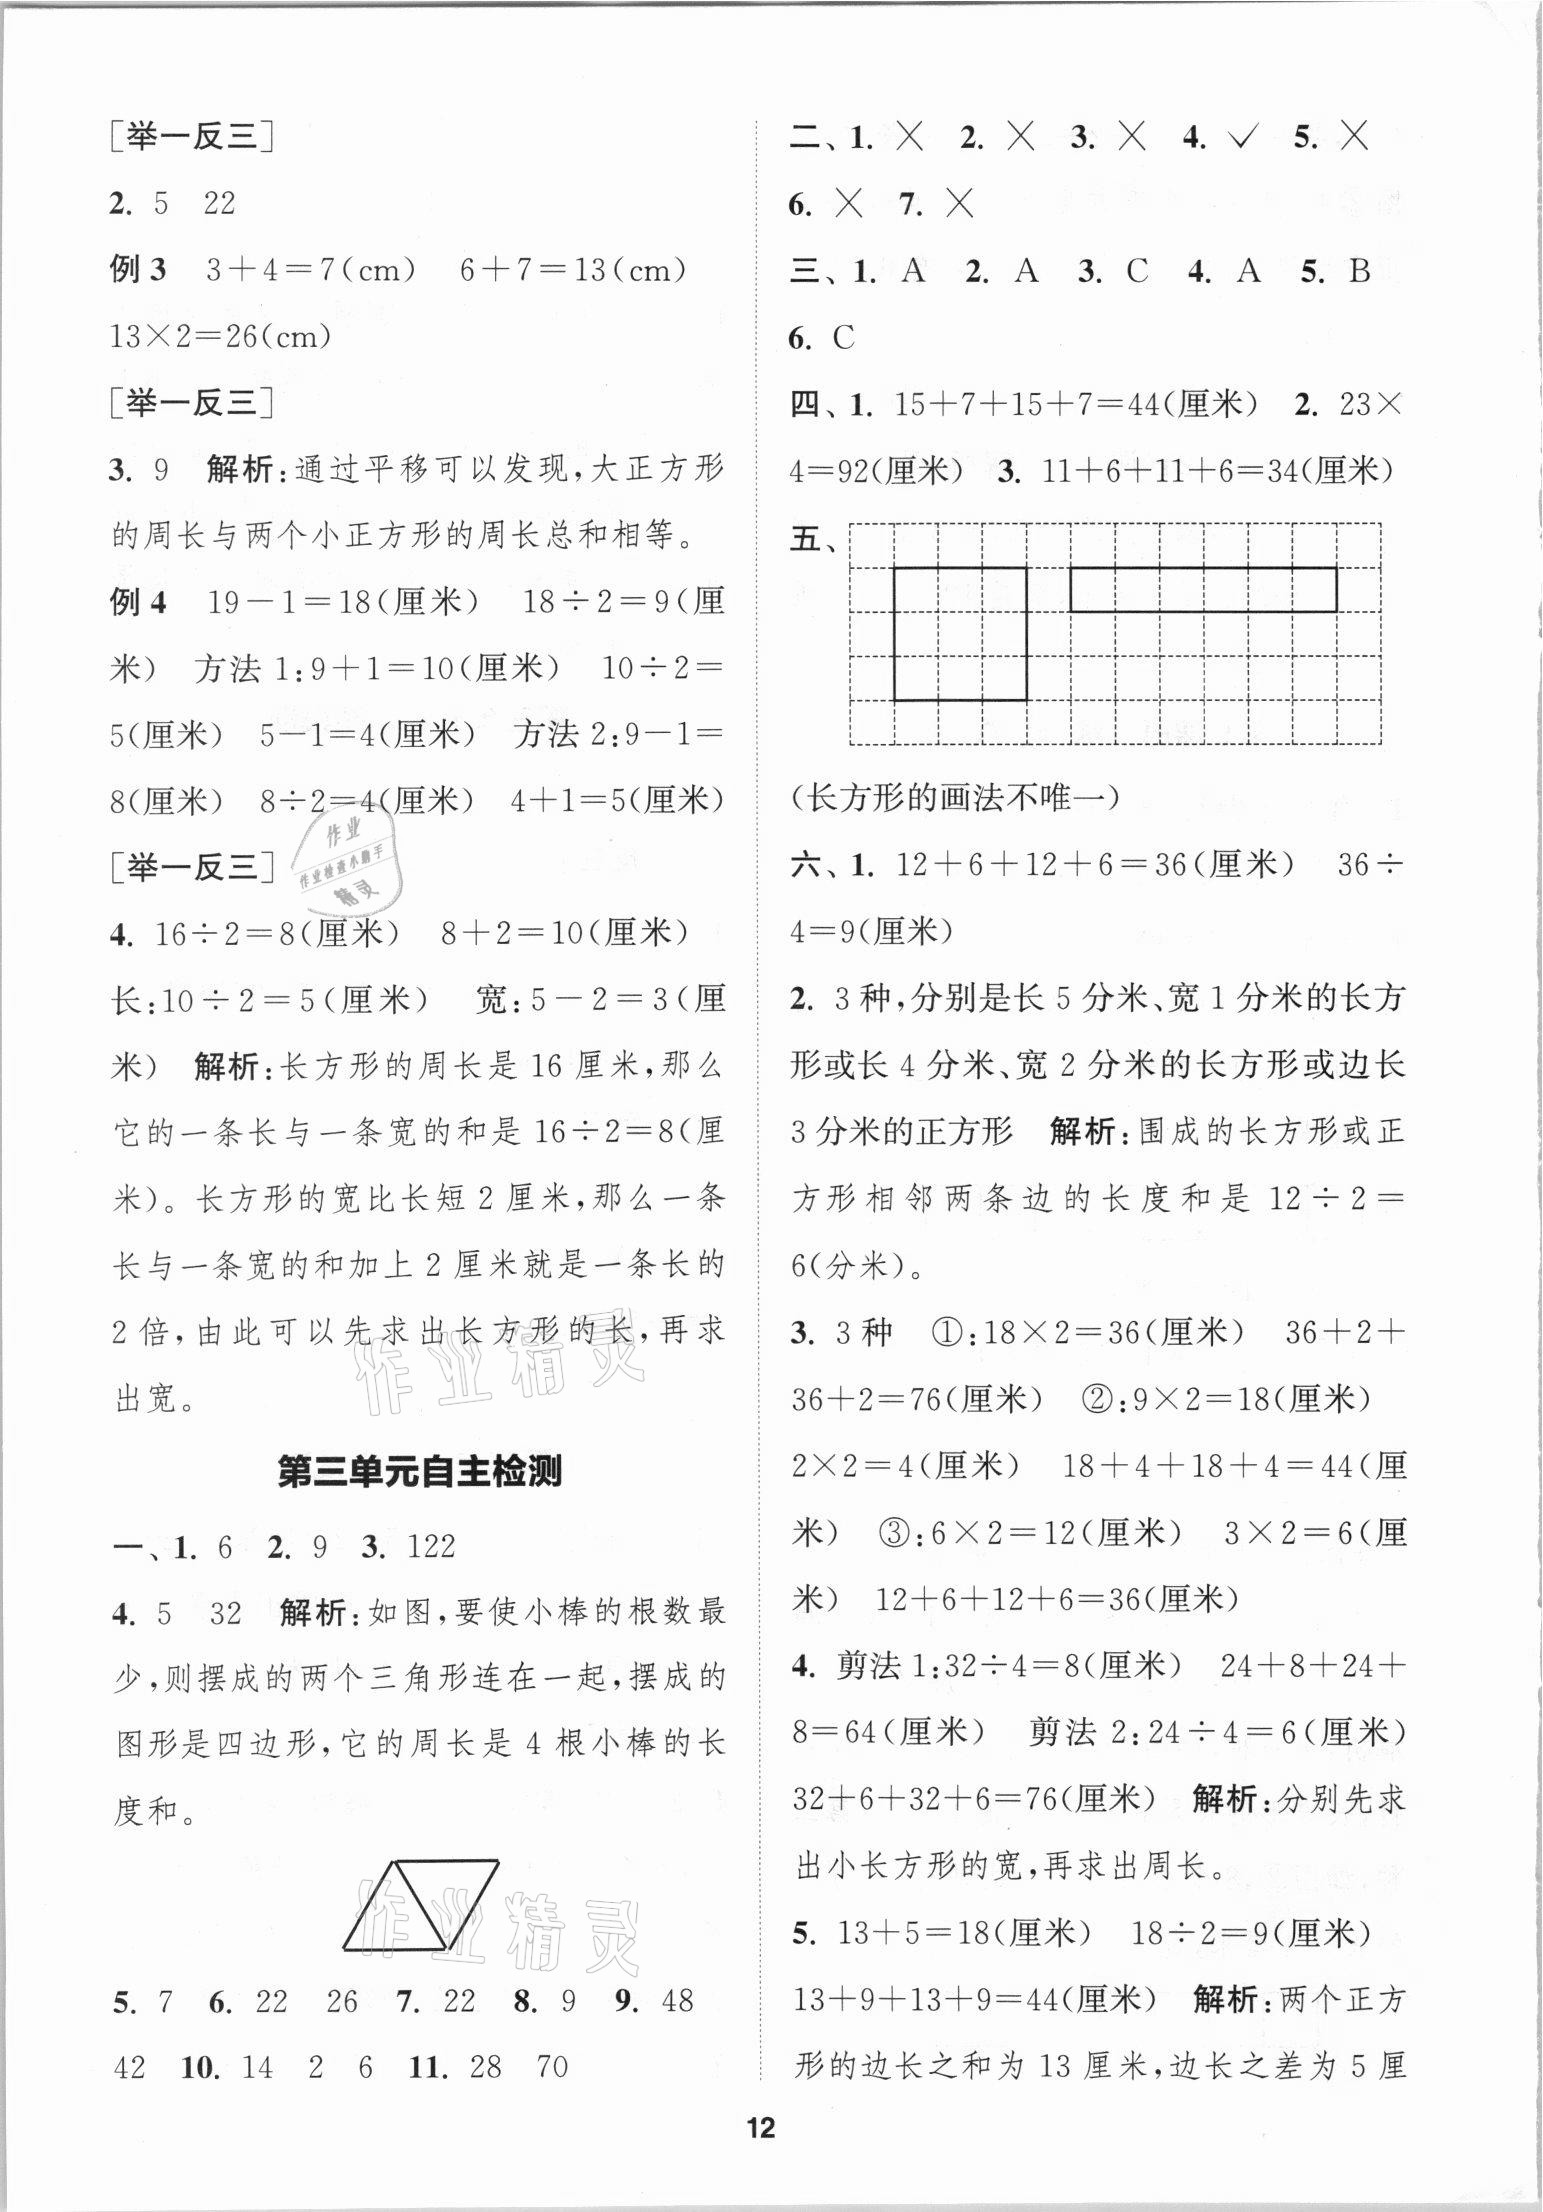 [举一反三]
2. 5 22
例3 3+4=7(cm) 6+7=13(cm)
13×2=26(cm)
[举一反三]
3. 9 解析:通过平移可以发现,大正方形
的周长与两个小正方形的周长总和相等。
例4 19-1=18(厘米) 18÷2=9(厘
米) 方法1:9+1=10(厘米) 10÷2=
5(厘米) 5-1=4(厘米) 方法2:9-1=
8(厘米) 8÷2=4(厘米) 4+1=5(厘米)
[举一反三]
4. 16÷2=8(厘米) 8+2=10(厘米)
长:10÷2=5(厘米) 宽:5-2=3(厘
米) 解析:长方形的周长是16厘米,那么
它的一条长与一条宽的和是16÷2=8(厘
米)。长方形的宽比长短2厘米,那么一条
长与一条宽的和加上2厘米就是一条长的
2倍,由此可以先求出长方形的长,再求
出宽。
第三单元自主检测
一、1. 6 2. 9 3. 122
4. 5 32 解析:如图,要使小棒的根数最
少,则摆成的两个三角形连在一起,摆成的
图形是四边形,它的周长是4根小棒的长
度和。
5. 7 6. 22 26 7. 22 8. 9 9. 48
42 10. 14 2 6 11. 28 70
二、1. × 2. × 3. × 4. ✓ 5. ×
6. × 7. ×
三、1. A 2. A 3. C 4. A 5. B
6. C
四、1. 15+7+15+7=44(厘米) 2. 23×
4=92(厘米) 3. 11+6+11+6=34(厘米)
五、
(长方形的画法不唯一)
六、1. 12+6+12+6=36(厘米) 36÷
4=9(厘米)
2. 3种,分别是长5分米、宽1分米的长方
形或长4分米、宽2分米的长方形或边长
3分米的正方形 解析:围成的长方形或正
方形相邻两条边的长度和是12÷2=
6(分米)。
3. 3种 ①:18×2=36(厘米) 36+2+
36+2=76(厘米) ②:9×2=18(厘米)
2×2=4(厘米) 18+4+18+4=44(厘
米) ③:6×2=12(厘米) 3×2=6(厘
米) 12+6+12+6=36(厘米)
4. 剪法1:32÷4=8(厘米) 24+8+24+
8=64(厘米) 剪法2:24÷4=6(厘米)
32+6+32+6=76(厘米) 解析:分别先求
出小长方形的宽,再求出周长。
5. 13+5=18(厘米) 18÷2=9(厘米)
13+9+13+9=44(厘米) 解析:两个正方
形的边长之和为13厘米,边长之差为5厘
12
作业
作业检查小助手
精灵
作业精灵
作业精灵